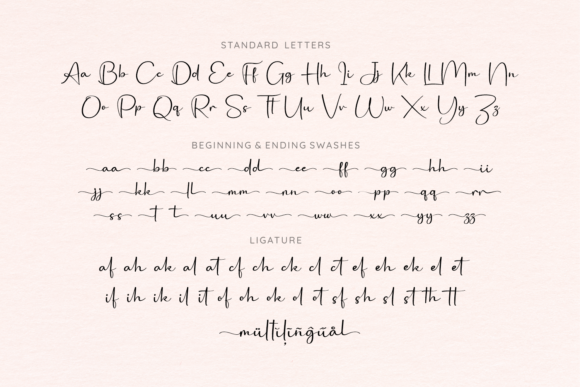 STANDARD LETTERS
Aa Bb Cc Dd Ee Ff Gg Hh Ii Jj Kk Ll Mm Nn
Oo Pp Qq Rr Ss Tt Uu Vv Ww Xx Yy Zz
BEGINNING & ENDING SWASHES
aa bb cc dd ee ff gg hh ii
jj kk ll mm nn oo pp qq rr
ss t t uu vv ww xx yy zz
LIGATURE
af ah ak al at cf ch ck cl ct ef eh ek el et
if ih ik il it of oh ok ol ot sf sh sl st th tt
mültiļīñĝűål